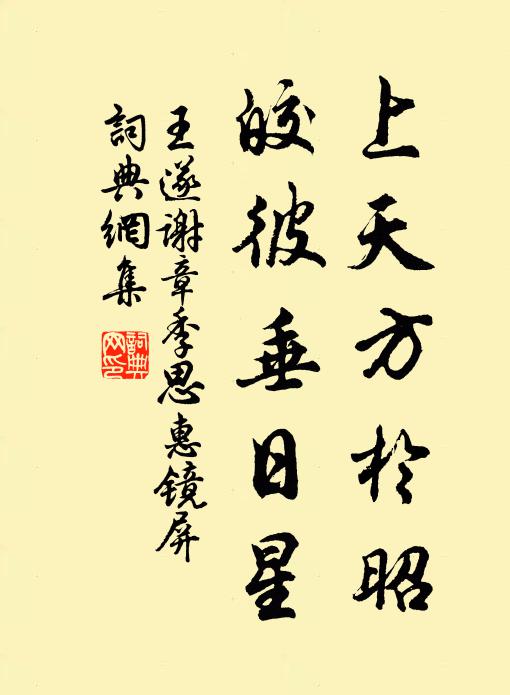 上天方於昭
皎彼垂日星
王遂谢章季思惠镜屏
詞典網集
詞典網印